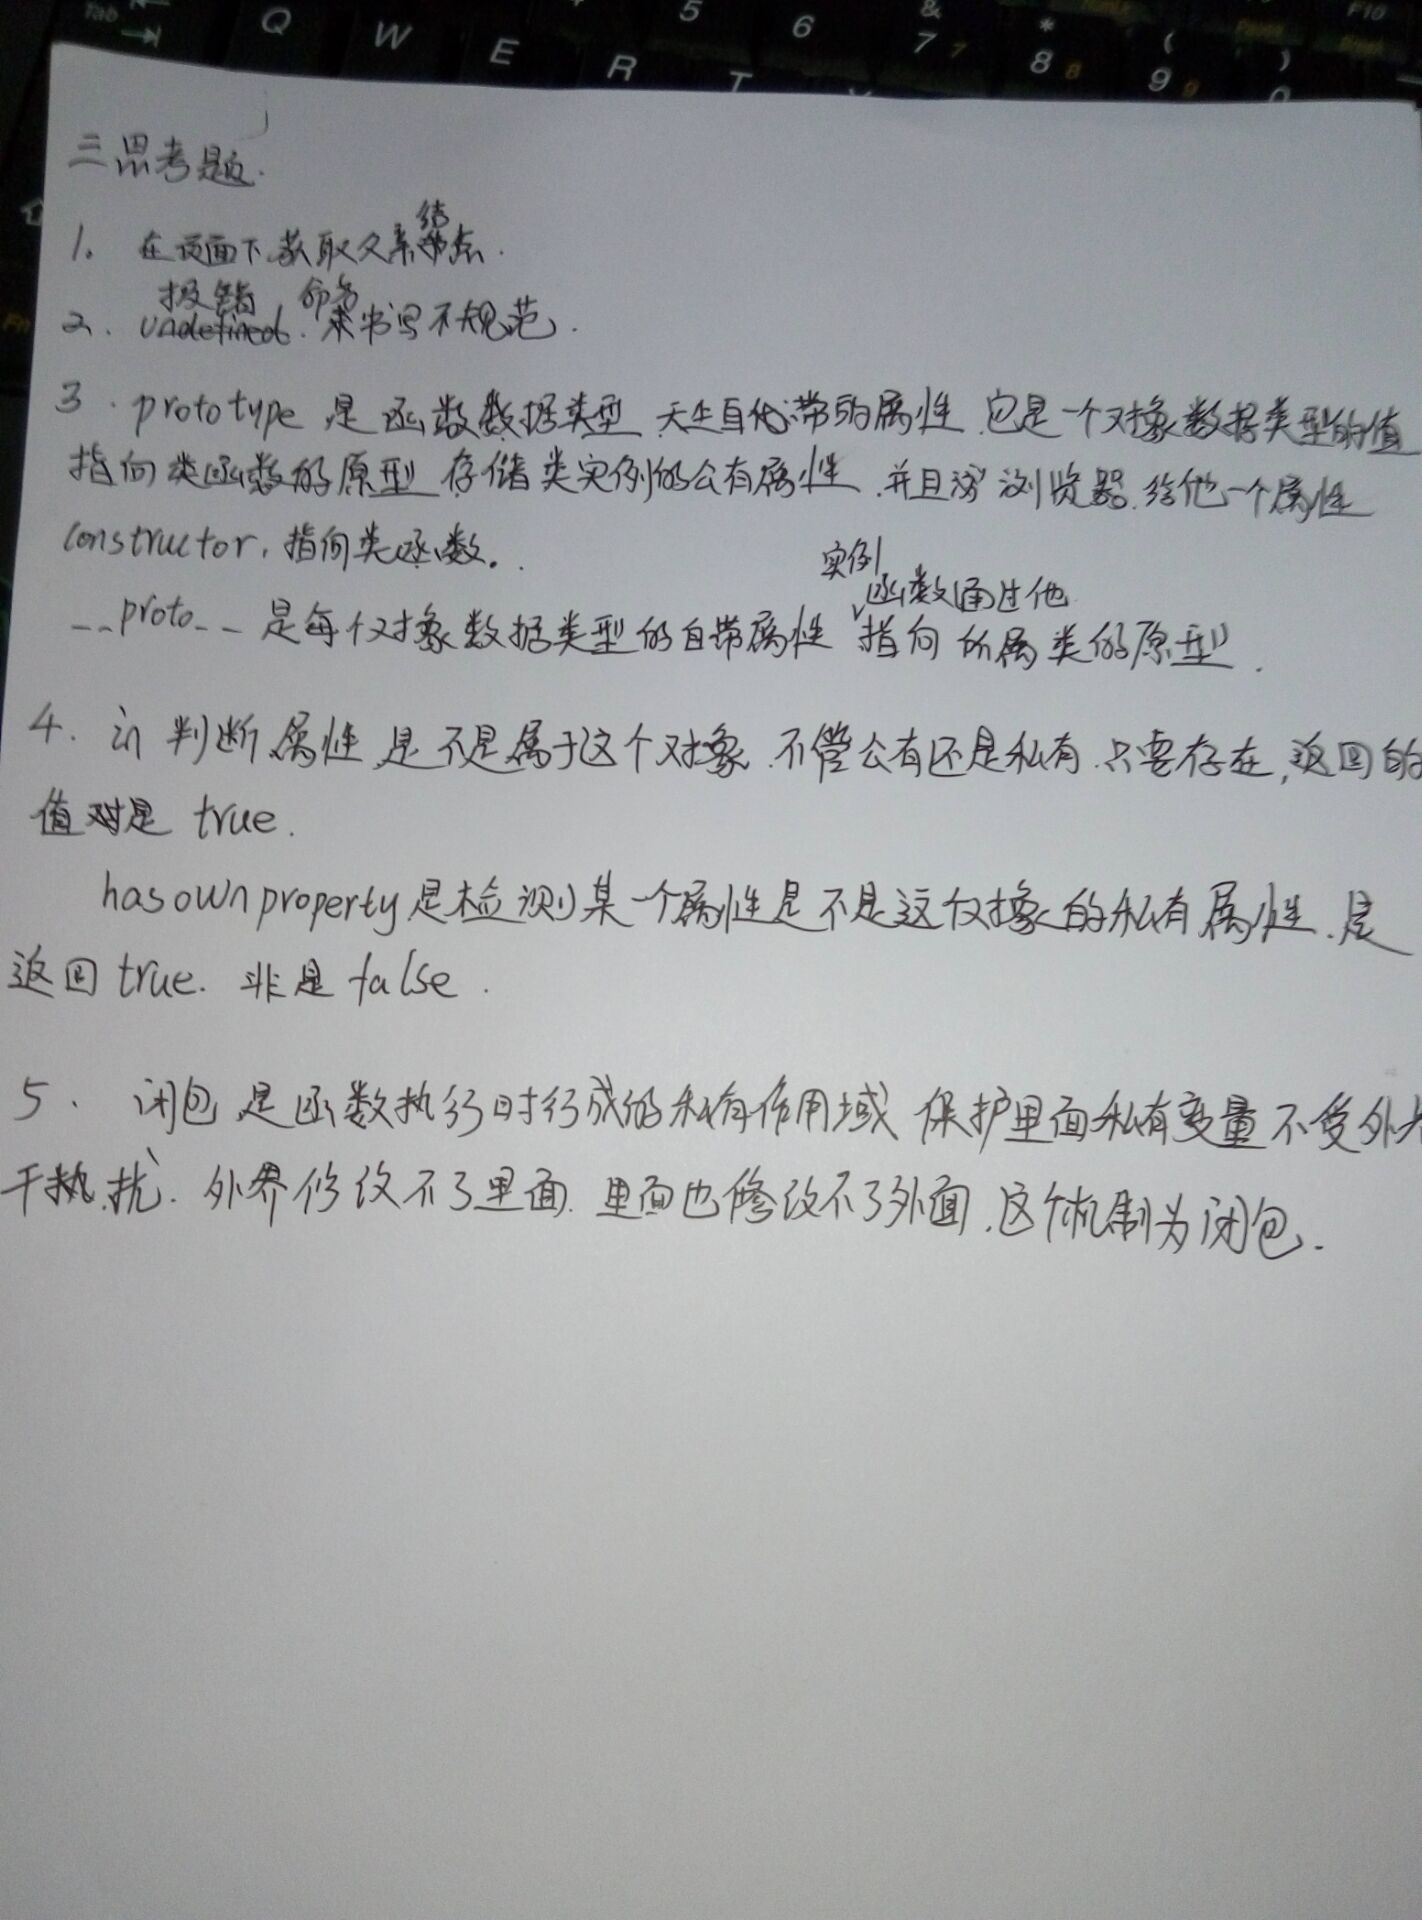 Tab
Q W E R T 5 6 & 7 7 * 8 8 ( 9 9 ) 0 F10
Fn
三思考题.
1. 在页面下获取父亲结点.
2. 报错 undefined. 命名书写不规范.
3. prototype 是函数数据类型 天生自带的属性 它是一个对象数据类型的值
指向类函数的原型 存储类实例的公有属性 并且浏览器给他一个属性
constructor, 指向类函数.
__proto__ 是每个对象数据类型的自带属性 实例函数通过他指向所属类的原型.
4. in 判断属性是不是属于这个对象.不管公有还是私有.只要存在,返回的
值都是 true.
hasownproperty是检测某一个属性是不是这个对象的私有属性.是
返回 true. 非是 false.
5. 闭包是函数执行时行成的私有作用域 保护里面私有变量不受外界
干扰. 外界修改不了里面. 里面也修改不了外面.这个机制为闭包.